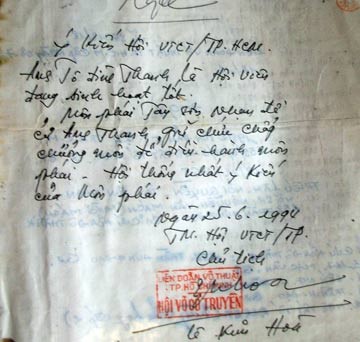 Ý Kiến Hội VTCT/TP.HCM.
Ông Tô Đình Thanh, là Hội viên
đang sinh hoạt tốt.
Môn phái Tây Sơn Nhạn
có ông Thanh giữ chức
chưởng môn để điều hành môn
phái. Hội thống nhất ý Kiến
của Môn phái.
Ngày 25.6.1994
TM. Hội VTCT/TP.
Chủ tịch
LIÊN ĐOÀN VÕ THUẬT
TP. HỒ CHÍ MINH
HỘI VÕ CỔ TRUYỀN
Lê Kim Hoà